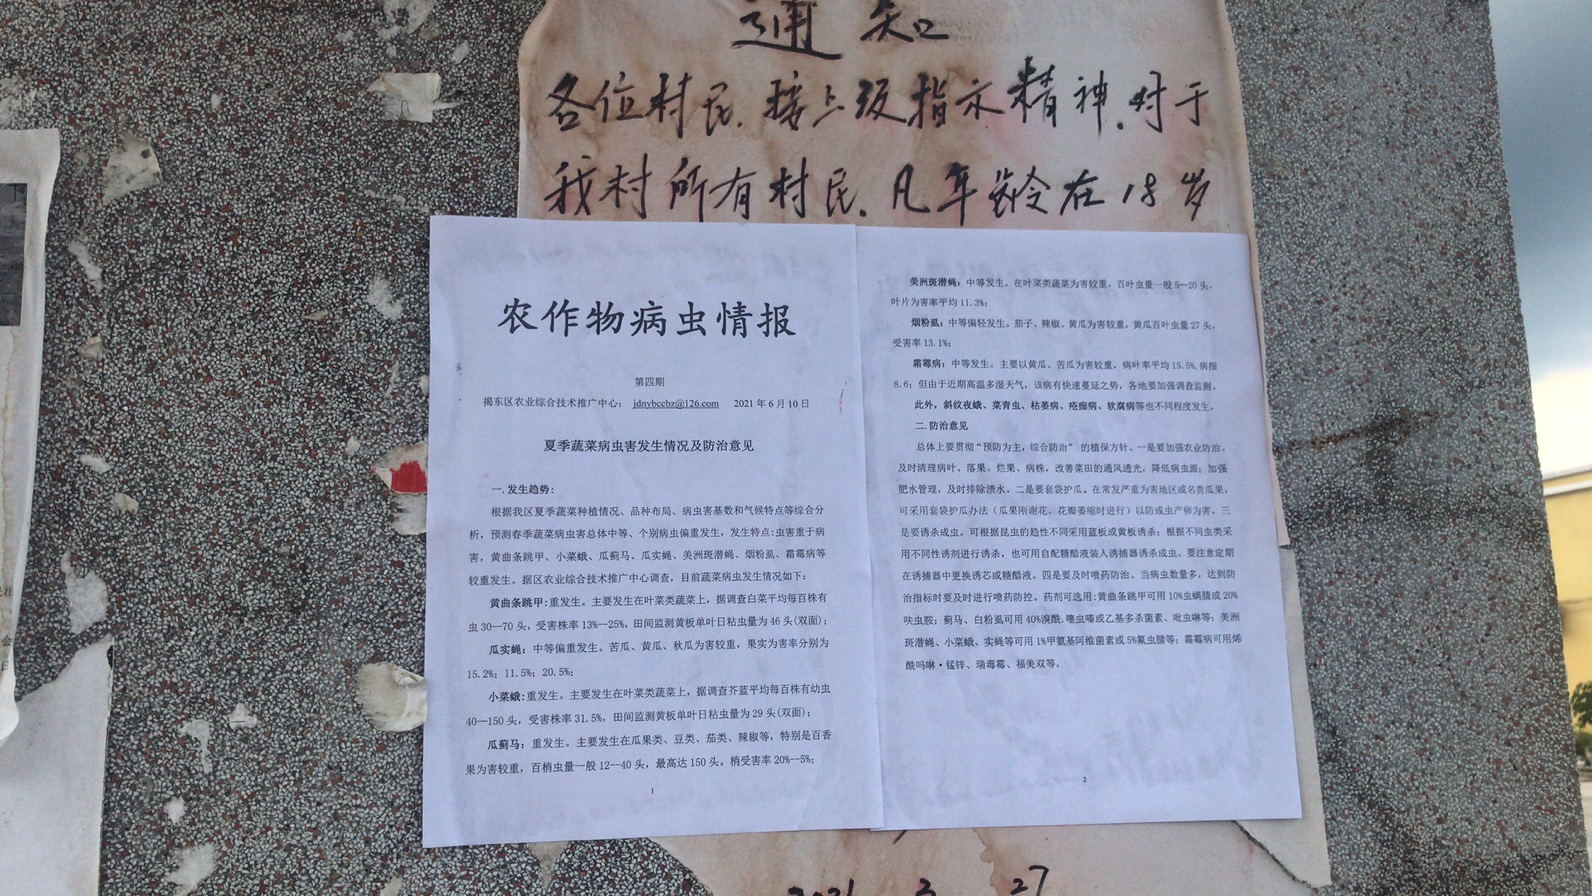 通知
各位村民.接上级指示精神.对于
我村所有村民.凡年龄在18岁
农作物病虫情报
第四期
揭东区农业综合技术推广中心： jdnybccbz@126.com 2021年6月10日
夏季蔬菜病虫害发生情况及防治意见
一.发生趋势:
根据我区夏季蔬菜种植情况、品种布局、病虫害基数和气候特点等综合分
析，预测春季蔬菜病虫害总体中等、个别病虫偏重发生，发生特点:虫害重于病
害，黄曲条跳甲、小菜蛾、瓜蓟马、瓜实蝇、美洲斑潜蝇、烟粉虱、霜霉病等
较重发生。据区农业综合技术推广中心调查，目前蔬菜病虫发生情况如下：
黄曲条跳甲:重发生。主要发生在叶菜类蔬菜上，据调查白菜平均每百株有
虫30—70头，受害株率13%--25%，田间监测黄板单叶日粘虫量为46头(双面)；
瓜实蝇：中等偏重发生。苦瓜、黄瓜、秋瓜为害较重，果实为害率分别为
15.2%；11.5%；20.5%；
小菜蛾:重发生。主要发生在叶菜类蔬菜上，据调查芥蓝平均每百株有幼虫
40—150头，受害株率31.5%，田间监测黄板单叶日粘虫量为29头(双面)；
瓜蓟马：重发生。主要发生在瓜果类、豆类、茄类、辣椒等，特别是百香
果为害较重，百梢虫量一般12--40头，最高达150头。梢受害率20%--5%；
1
美洲斑潜蝇：中等发生。在叶菜类蔬菜为害较重，百叶虫量一般5—20头，
叶片为害率平均11.3%；
烟粉虱：中等偏轻发生。茄子、辣椒、黄瓜为害较重，黄瓜百叶虫量27头，
受害率13.1%；
霜霉病：中等发生。主要以黄瓜、苦瓜为害较重，病叶率平均15.5%,病指
8.6；但由于近期高温多湿天气，该病有快速蔓延之势，各地要加强调查监测。
此外，斜纹夜蛾、菜青虫、枯萎病、疮痂病、软腐病等也不同程度发生。
二.防治意见
总体上要贯彻“预防为主，综合防治”的植保方针。一是要加强农业防治。
及时清理病叶、落果、烂果、病株，改善菜田的通风透光，降低病虫源；加强
肥水管理，及时排除渍水。二是要套袋护瓜。在常发严重为害地区或名贵瓜果，
可采用套袋护瓜办法（瓜果刚谢花、花瓣萎缩时进行）以防成虫产卵为害。三
是要诱杀成虫。可根据昆虫的趋性不同采用蓝板或黄板诱杀；根据不同虫类采
用不同性诱剂进行诱杀，也可用自配糖醋液装入诱捕器诱杀成虫，要注意定期
在诱捕器中更换诱芯或糖醋液。四是要及时喷药防治。当病虫数量多，达到防
治指标时要及时进行喷药防控。药剂可选用:黄曲条跳甲可用10%虫螨腈或20%
呋虫胺；蓟马、白粉虱可用40%溴酰.噻虫嗪或乙基多杀菌素、吡虫啉等；美洲
斑潜蝇、小菜蛾、实蝇等可用1%甲氨基阿维菌素或5%氟虫腈等；霜霉病可用烯
酰吗啉·锰锌、瑞毒霉、福美双等。
2
2021 3 27